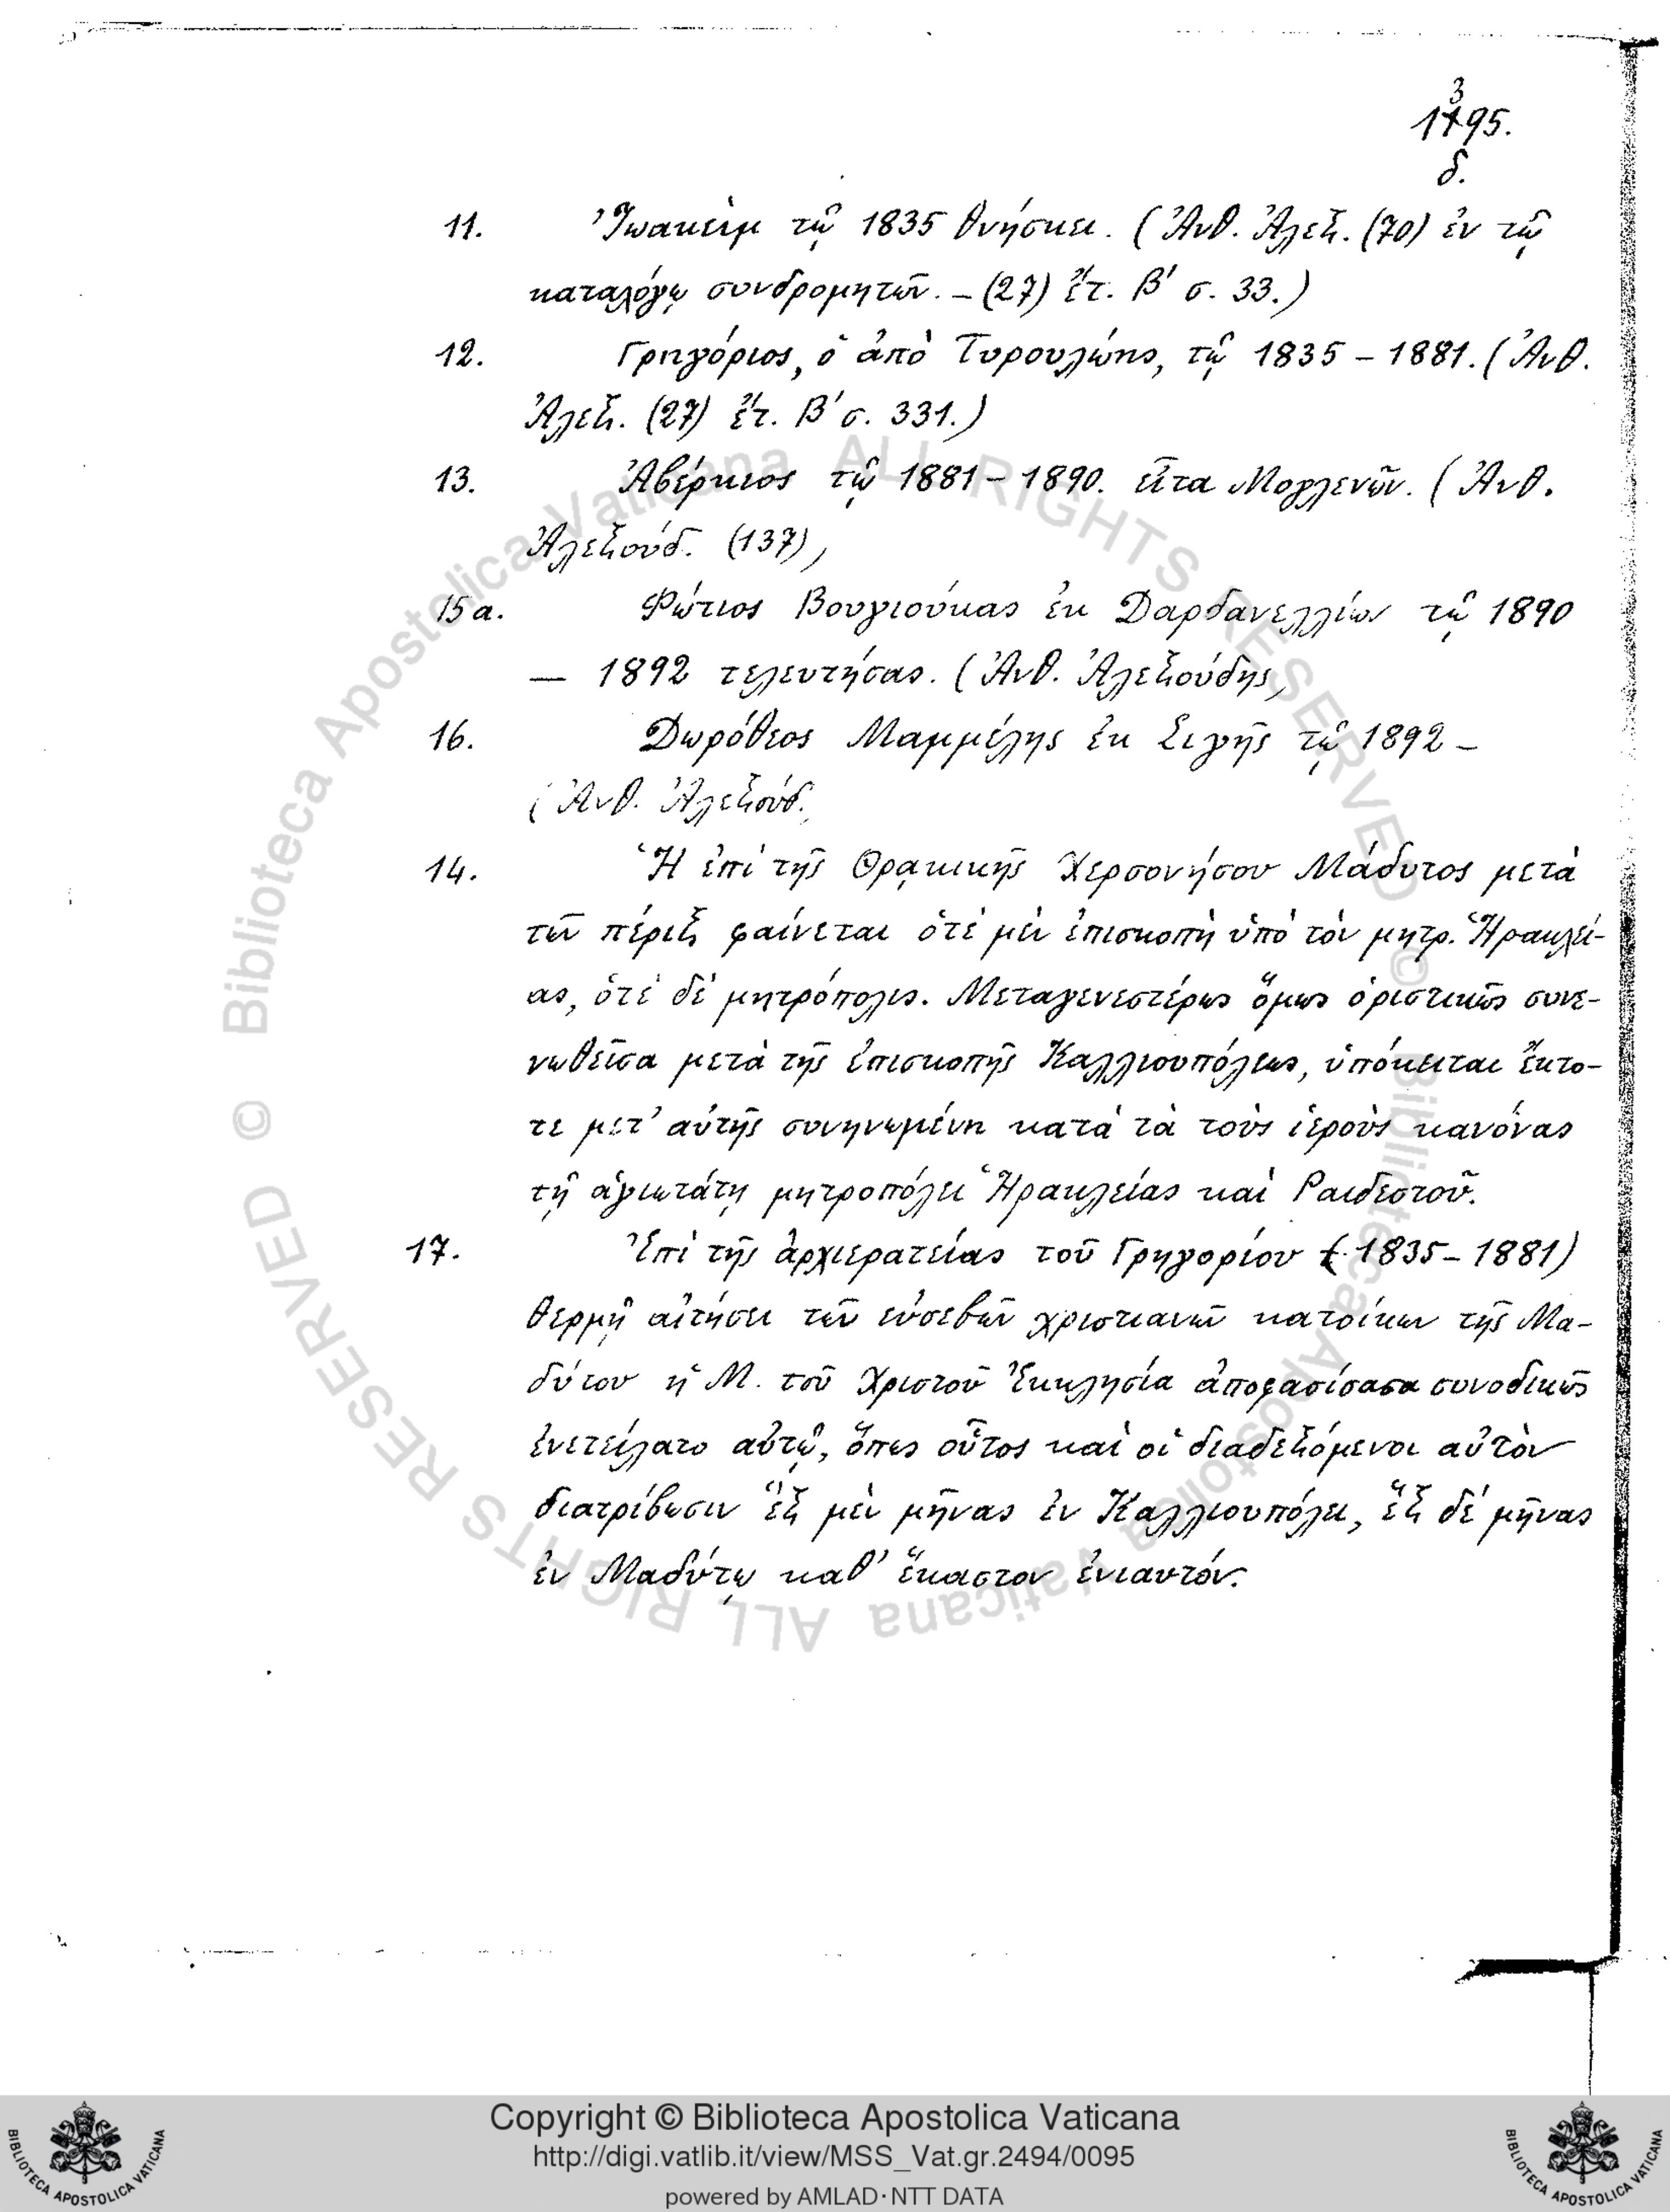 3
1495.
δ.
11. Ἰωακεὶμ τῷ 1835 θνήσκει. (Ἀνθ. Ἀλεξ. (70) ἐν τῷ
καταλόγῳ συνδρομητῶν. – (27) ἔτ. Β′ σ. 33.)
12. Γρηγόριος, ὁ ἀπὸ Τυρουλώης, τῷ 1835 – 1881. (Ἀνθ.
Ἀλεξ. (27) ἔτ. Β′ σ. 331.)
13. Ἀβέρκιος τῷ 1881 – 1890. εἶτα Μογλενῶν. (Ἀνθ.
Ἀλεξούδ. (137),
15a. Φώτιος Βουγιούκας ἐκ Δαρδανελλίων τῷ 1890
— 1892 τελευτήσας. (Ἀνθ. Ἀλεξούδης,
16. Δωρόθεος Μαμμέλης ἐκ Σιγῆς τῷ 1892 –
(Ἀνθ. Ἀλεξούδ.
14. Ἡ ἐπὶ τῆς Θρακικῆς Χερσονήσου Μάδυτος μετὰ
τῶν πέριξ φαίνεται ὁτὲ μὲν ἐπισκοπὴ ὑπὸ τὸν μητρ. Ἡρακλεί-
ας, ὁτὲ δὲ μητρόπολις. Μεταγενεστέρως ὅμως ὁριστικῶς συνε-
νωθεῖσα μετὰ τῆς ἐπισκοπῆς Καλλιουπόλεως, ὑπόκειται ἔκτο-
τε μετ’ αὐτῆς συνηνωμένη κατὰ τὰ τοὺς ἱεροὺς κανόνας
τῇ ἁγιωτάτῃ μητροπόλει Ἡρακλείας καὶ Ραιδεστοῦ.
17. Ἐπὶ τῆς ἀρχιερατείας τοῦ Γρηγορίου (1835 – 1881)
θερμῇ αἰτήσει τῶν εὐσεβῶν χριστιανῶν κατοίκων τῆς Μα-
δύτου ἡ Μ. τοῦ Χριστοῦ Ἐκκλησία ἀποφασίσασα συνοδικῶς
ἐνετείλατο αὐτῷ, ὅπως οὗτος καὶ οἱ διαδεξόμενοι αὐτὸν
διατρίβωσιν ἓξ μὲν μῆνας ἐν Καλλιουπόλει, ἓξ δὲ μῆνας
ἐν Μαδύτῳ καθ’ ἕκαστον ἐνιαυτόν.
© Biblioteca Apostolica Vaticana ALL RIGHTS RESERVED
© Biblioteca Apostolica Vaticana ALL RIGHTS RESERVED
Copyright © Biblioteca Apostolica Vaticana
http://digi.vatlib.it/view/MSS_Vat.gr.2494/0095
powered by AMLAD·NTT DATA
BIBLIOTECA APOSTOLICA VATICANA
BIBLIOTECA APOSTOLICA VATICANA